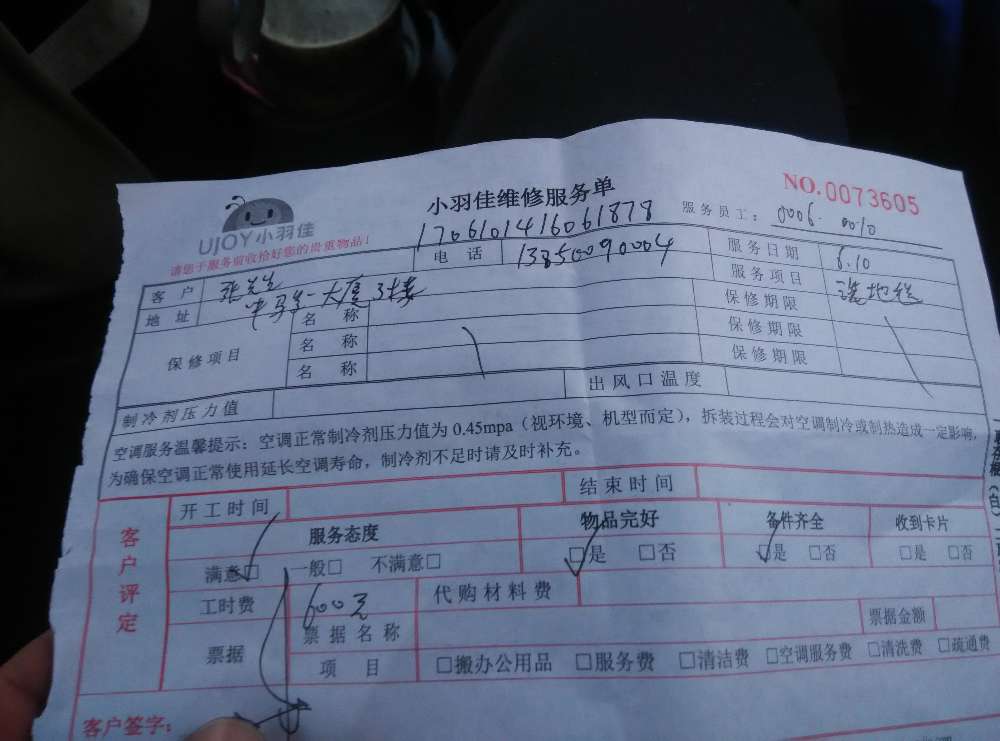 小羽佳维修服务单
NO.0073605
UJOY小羽佳
请您于服务前收拾好您的贵重物品!
170610141606 1878
服务员工: 0006. 0010
客户 张先生 电话 13850090004 服务日期 6.10
地址 大厦3楼 服务项目 洗地毯
保修项目 名称 保修期限
名称 保修期限
名称 保修期限
制冷剂压力值 出风口温度
空调服务温馨提示:空调正常制冷剂压力值为0.45mpa(视环境、机型而定),拆装过程会对空调制冷或制热造成一定影响,
为确保空调正常使用延长空调寿命,制冷剂不足时请及时补充。
客户评定
开工时间 结束时间
服务态度 物品完好 备件齐全 收到卡片
满意□ 一般□ 不满意□ □是 □否 □是 □否 □是 □否
工时费 600元 代购材料费
票据 票据名称 票据金额
项目 □搬办公用品 □服务费 □清洁费 □空调服务费 □清洗费 □疏通费
客户签字: